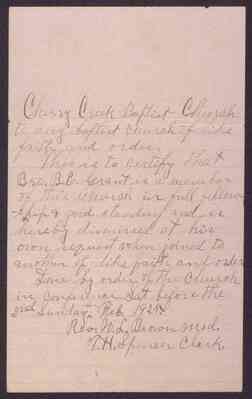 Cherry Creek Baptist Church
to any baptist church of like
faith and order,
This is to certify that
Bro. B.C. Grant is a member
of this church in full fellow-
ship & good standing and is
hereby dismissed at his
own request when joined to
another of like faith and order
Done by order of the Church
in conference Sat before the
2nd Sunday Feb 192
Rev W.L. Brown Mod.
T.H. Spencer Clerk